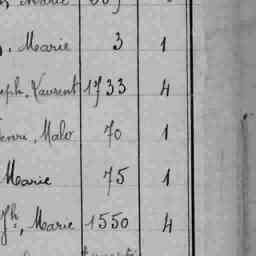 Marie
, Marie 3 1
eph, Laurent 1733 4
enri, Malo 70 1
Marie 75 1
Jh, Marie 1550 4